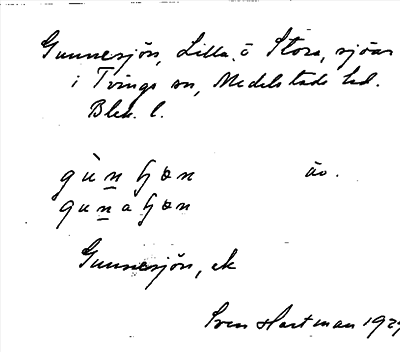 Gunnesjön, Lilla o Stora, sjöar
i Tvings sn, Medelstads hd.
Blek. l.
gùn ɧɵn äo.
gunaɧɵn
Gunnesjön, ek
Sven Hartman 192